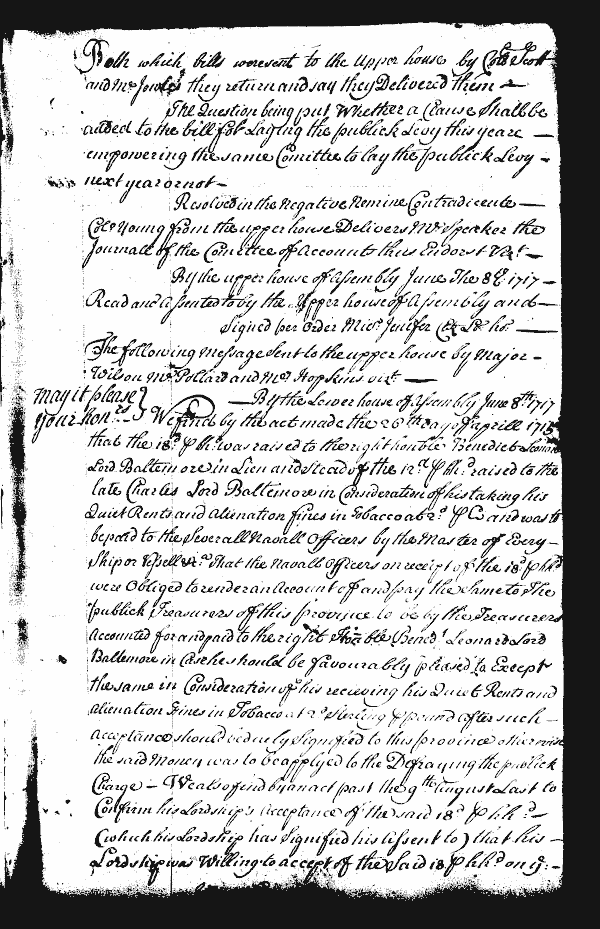 Both which bills were sent to the Upper house by Coll Scott
and Mr Jowles they return and say they Delivered them —
The Question being put Whether a Clause Shall be
added to the bill for Laying the publick Levy this yeare —
empowering the same Comittee to lay the publick Levy —
next year or not —
Resolved in the Negative Nemine Contradicente —
Coll Young from the upper house Delivers Mr Speaker the
Journall of the Comittee of Accounts thus Endorst Vizt —
By the upper house of Assembly June The 8th 1717 —
Read and assented to by the Upper house of Assembly and —
Signed per Order Micl Jenifer Clk ho. —
The following message Sent to the upper house by Major —
Wilson Mr Pollard and Mr Hopkins vizt —
By the Lower house of Assembly June 8th 1717
may it please
your honrs We find by the act made the 26th day of Aprill 1715
that the 18d P hhd was raised to the right honble Benedict Leonard
Lord Baltemore in Lieu and Stead of the 12d P hhd raised to the
late Charles Lord Baltemore in Consideration of his taking his
Quiet Rents and alienation fines in Tobacco at 2d P and was to
be paid to the Severall Navall Officers by the Master of Every —
Ship or Vessell &c. That the Navall Officers on receipt of the 18d P hhd
were Obliged to render an Account off and pay the Same to The
publick Treasurers of this province to be by the Treasurers
Accounted for and paid to the right Honble Bened: Leonard Lord
Baltemore in Case he should be favourably pleased to Except
the same in Consideration of his recieving his Quiet Rents and
alienation Fines in Tobacco at 2d Sterling P pound after such —
acceptance should be duely Signified to this province otherwise
the said Money was to be applyed to the Defraying the publick
Charge — We also find by an act past the 9th August Last to
Confirm his Lordship's acceptance of the said 18d P hhd —
(which his Lordship has Signified his assent to) that his —
Lordship was Willing to accept off the Said 18 P hhd on ye: —